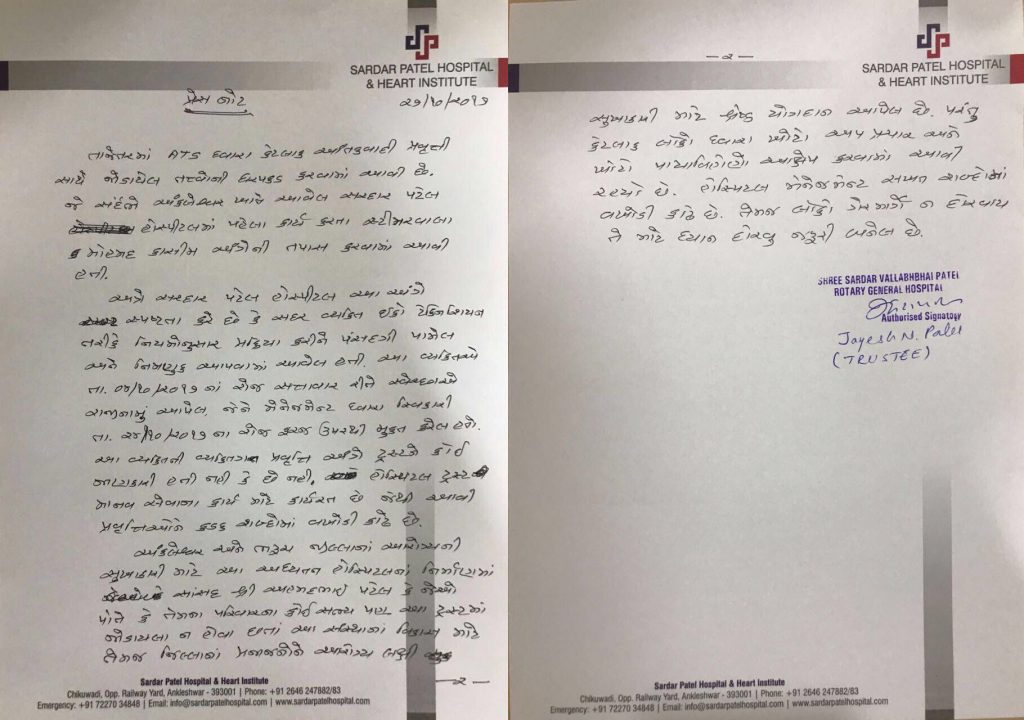 SARDAR PATEL HOSPITAL
& HEART INSTITUTE
પ્રેસ નોટ
૨૭/૧૦/૨૦૧૭
તાજેતરમાં ATS દ્વારા કેટલાક આતંકવાદી પ્રવૃત્તી
સાથે જોડાયેલ તત્વોની ધરપકડ કરવામાં આવી છે.
જે સંદર્ભે અંકલેશ્વર ખાતે આવેલ સરદાર પટેલ
હોસ્પીટલમાં પહેલા કાર્ય કરતા સ્ટીમરવાલા
મોહમદ કાસીમ અંગેની તપાસ કરવામાં આવી
હતી.
અત્રે સરદાર પટેલ હોસ્પીટલ આ અંગે
સ્પષ્ટતા કરે છે કે સદર વ્યકિત ઈકો ટેકનિશિયન
તરીકે નિયમોનુસાર પ્રક્રિયા કરીને પસંદગી પામેલ
અને નિમણુક આપવામાં આવેલ હતી. આ વ્યકિતએ
તા. ૦૪/૧૦/૨૦૧૭ નાં રોજ સત્તાવાર રીતે સ્વેચ્છાએ
રાજીનામું આપેલ, જેને મેનેજમેન્ટ દ્વારા સ્વિકારી
તા. ૨૪/૧૦/૨૦૧૭ ના રોજ ફરજ ઉપરથી મુકત કરેલ હતો.
આ વ્યકિતની વ્યકિતગત પ્રવૃત્તિ અંગે ટ્રસ્ટને કોઈ
જાણકારી હતી નહી કે છે નહી. હોસ્પિટલ ટ્રસ્ટ
માનવ સેવાના કાર્ય માટે કાર્યરત છે જેથી આવી
પ્રવૃત્તિઓને કડક શબ્દોમાં વખોડી કાઢે છે.
અંકલેશ્વર અને ભરૂચ જીલ્લાનાં આરોગ્યની
સુખાકારી માટે આ અદ્યતન હોસ્પિટલનાં નિર્માણમાં
સાંસદ શ્રી અહમદભાઈ પટેલ કે જેઓ
પોતે કે તેમના પરિવારના કોઈ સભ્ય પણ આ ટ્રસ્ટમાં
જોડાયેલા ન હોવા છતાં આ સંસ્થાનાં વિકાસ માટે
તેમજ જિલ્લાનાં પ્રજાજનોને આરોગ્ય લક્ષી
— ૨ —
Sardar Patel Hospital & Heart Institute
Chikuwadi, Opp. Railway Yard, Ankleshwar - 393001 | Phone: +91 2646 247882/83
Emergency: +91 72270 34848 | Email: info@sardarpatelhospital.com | www.sardarpatelhospital.com
SARDAR PATEL HOSPITAL
& HEART INSTITUTE
— ૨ —
સુખાકારી માટે શ્રેષ્ઠ યોગદાન આપેલ છે. પરંતુ
કેટલાક લોકો દ્વારા ખોટો અપ પ્રચાર અને
ખોટો પાયાવિહોણો આક્ષેપ કરવામાં આવી
રહયો છે. હોસ્પિટલ મેનેજમેન્ટ સખત શબ્દોમાં
વખોડી કાઢે છે. તેમજ લોકો ગેરમાર્ગે ન દોરવાય
તે માટે ધ્યાન દોરવુ જરૂરી બનેલ છે.
SHREE SARDAR VALLABHBHAI PATEL
ROTARY GENERAL HOSPITAL
Authorised Signatory
Jayesh N. Patel
(TRUSTEE)
Sardar Patel Hospital & Heart Institute
Chikuwadi, Opp. Railway Yard, Ankleshwar - 393001 | Phone: +91 2646 247882/83
Emergency: +91 72270 34848 | Email: info@sardarpatelhospital.com | www.sardarpatelhospital.com